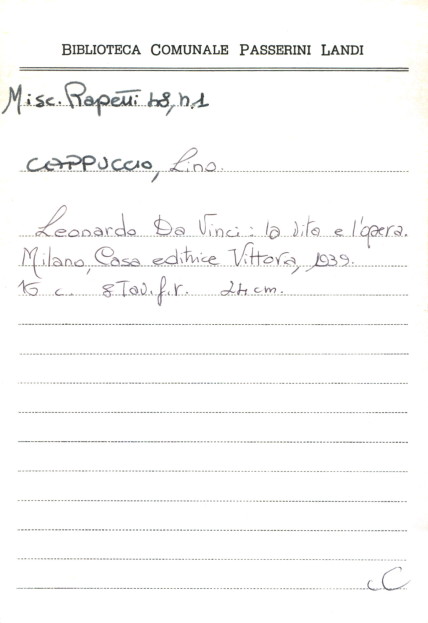 BIBLIOTECA COMUNALE PASSERINI LANDI
Misc. Rapetti 48, n.1
CAPPUCCIO, Lino.
Leonardo Da Vinci : la vita e l'opera.
Milano, Casa editrice Vittoria, 1939.
15 c. 8 Tav. f.r. 24 cm.
C